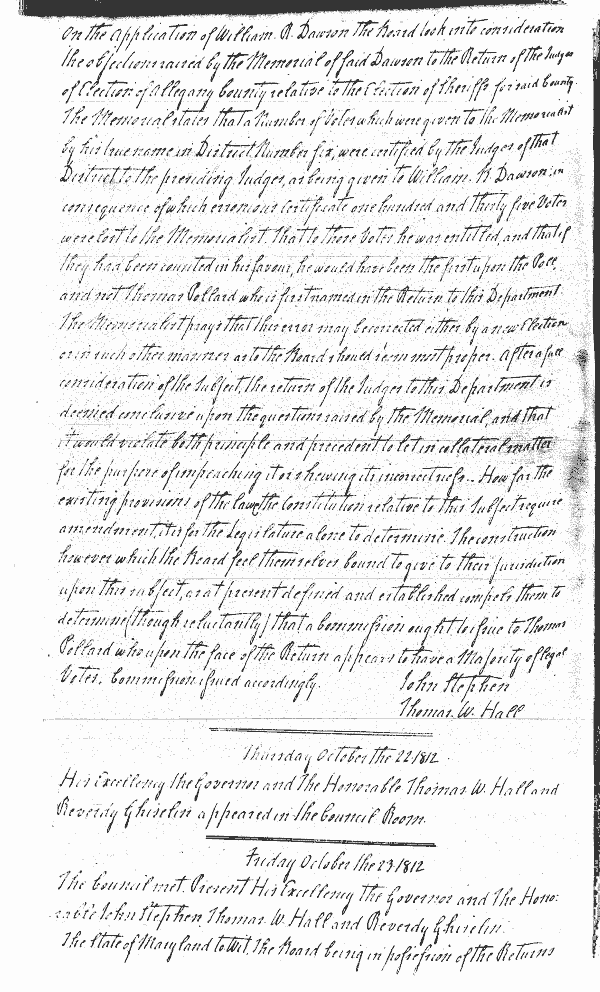 On the Application of William. R. Dawson the Board took into consideration
the objections raised by the Memorial of said Dawson to the Return of the Judges
of Election of Allegany County relative to the Election of Sheriffs for said County.
The Memorial states that a Number of Votes which were given to the Memorialist
by his true name in District Number six, were certified by the Judges of that
District to the presiding Judges, as being given to William. B. Dawson, in
consequence of which erronious Certificate one hundred and thirty five Votes
were lost to the Memorialist. That to those Votes he was entitled, and that if
they had been counted in his favour, he would have been the first upon the Poll,
and not Thomas Pollard who is first named in the Return to this Department.
The Memorialist prays that this error may be corrected either by a new Election
or in such other manner as to the Board should seem most proper. After a full
consideration of the Subject, the return of the Judges to this Department is
deemed conclusive upon the questions raised by the Memorial, and that
it would violate both principle and precedent to let in collateral matter
for the purpose of impeaching it or shewing its incorrectness. How far the
existing provisions of the law, the Constitution relative to this Subject require
amendment, it is for the Legislature alone to determine. The construction
however which the Board feel themselves bound to give to their jurisdiction
upon this subject, as at present defined and established compels them to
determine (though reluctantly) that a Commission ought to issue to Thomas
Pollard who upon the face of the Return appears to have a Majority of legal
Votes. Commission issued accordingly.
John Stephen
Thomas. W. Hall
Thursday October the 22 1812.
His Excellency the Governor and The Honorable Thomas W. Hall and
Reverdy Ghiselin appeared in the Council Room.
Friday October the 23 1812
The Council met. Present His Excellency the Governor and The Hono-
rable John Stephen, Thomas W. Hall and Reverdy Ghiselin.
The State of Maryland to Wit, The Board being in possession of the Returns